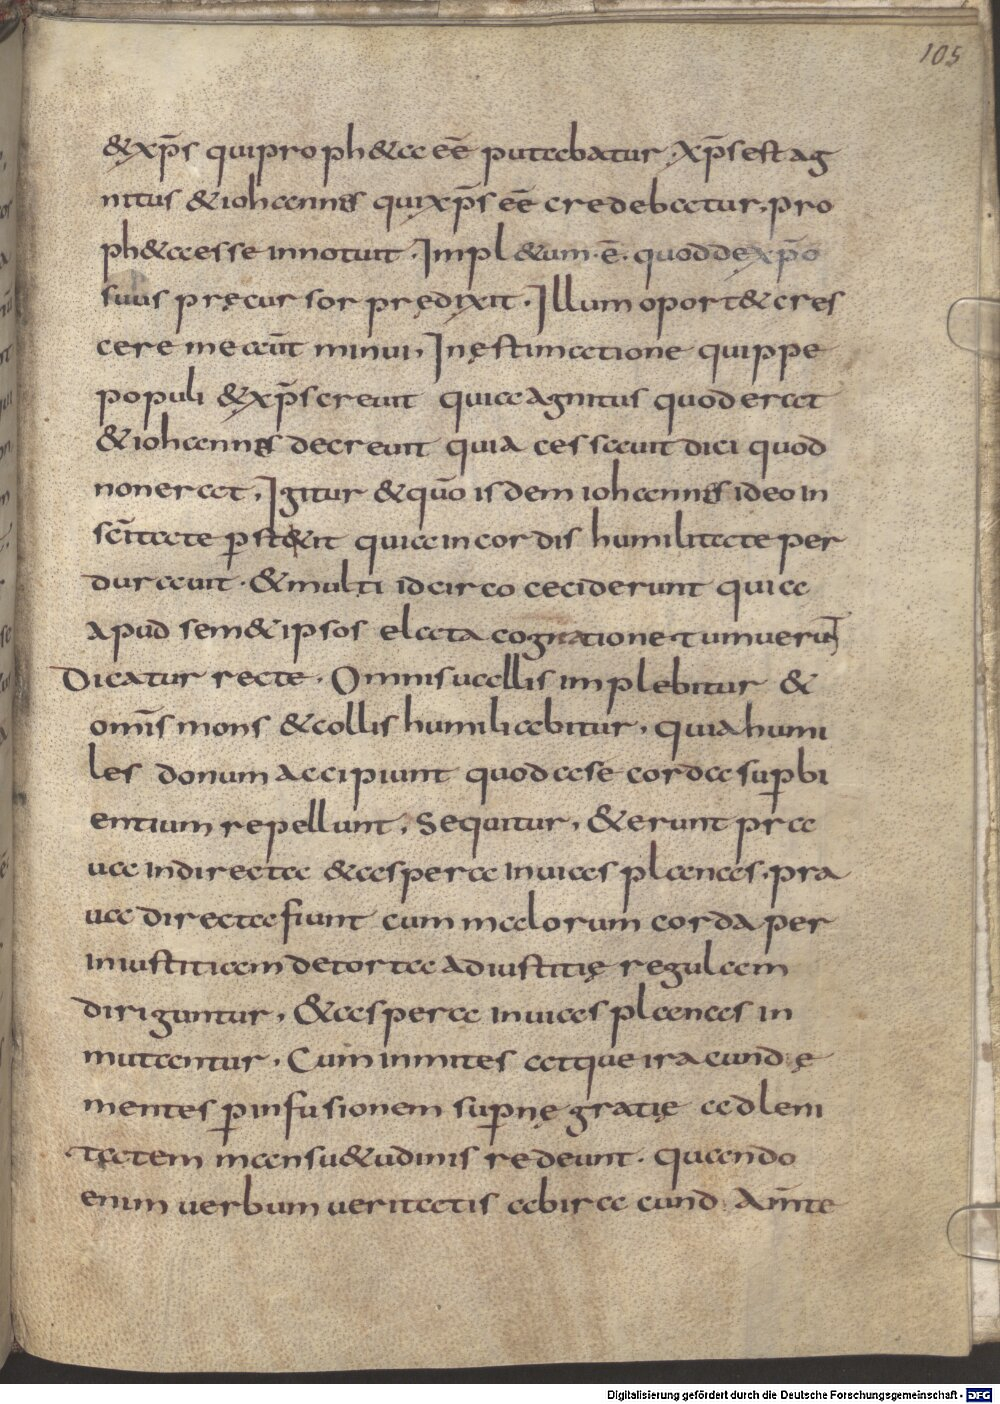 105
&xp̄s quiproph&a eē putabatur. Xp̄s est ag
nitus &iohannes quixp̄s eē credebatur. pro
ph&aesse innotuit. Impl&um.ē. quoddexp̄o
suus pręcursor prędixit. Illum oport&cres
cere me aūt minui. Inęstimatione quippe
populi &xp̄s creuit quia agnitus quod erat
&iohannes decreuit quia cessauit dici quod
nonerat. Igitur &quō isdem iohannes ideo in
sc̄itate p̱st&it quia incordis humilitate per
durauit. &multi idcirco ceciderunt quia
apud sem&ipsos elata cognatione tumuerunt
Dicatur recte. Omnis uallis implebitur &
om̄is mons &collis humiliabitur. quia humi
les donum accipiunt quod a se corda sup̱bi
entium repellunt. Sequitur. &erunt pra
ua indirecta &aspera inuias planas. pra
ua directa fiunt cum malorum corda per
iniustitiam detorta adiustitię regulam
diriguntur. &aspera inuias planas in
mutantur. Cum inmites atque iracundę
mentes p̱infusionem sup̱nę gratię ad leni
tatem mansu&udinis redeunt. quando
enim uerbum ueritatis abiracund. Am̄te
Digitalisierung gefördert durch die Deutsche Forschungsgemeinschaft - DFG